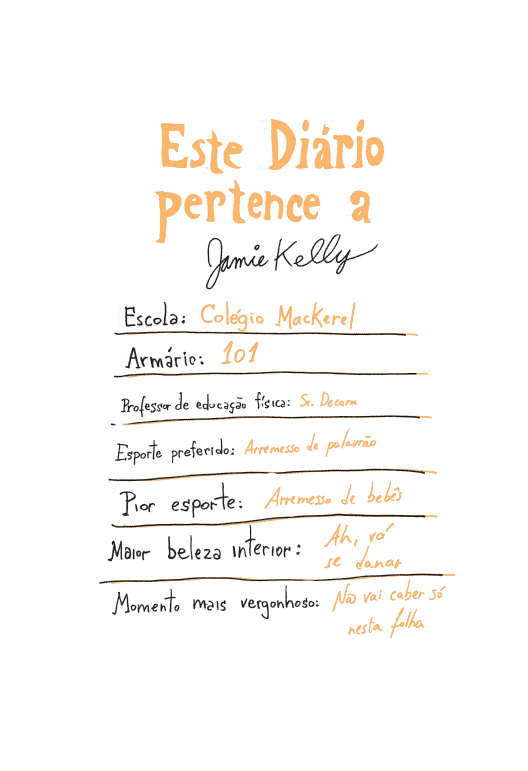 Este Diário
pertence a
Jamie Kelly
Escola: Colégio Mackerel
Armário: 101
Professor de educação física: Sr. Decam
Esporte preferido: Arremesso de palavrão
Pior esporte: Arremesso de bebês
Maior beleza interior: Ah, vá
se danar
Momento mais vergonhoso: Não vai caber só
nesta folha